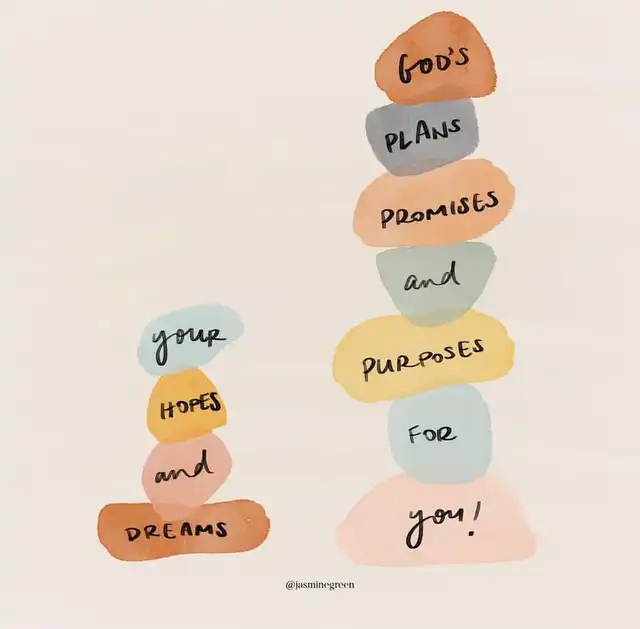 your
HOPES
and
DREAMS
GOD'S
PLANS
PROMISES
and
PURPOSES
FOR
you!
@jasminegreen